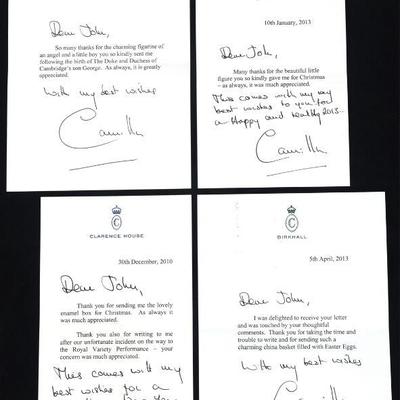 Dear John,
So many thanks for the charming figurine of
an angel and a little boy you so kindly sent me
following the birth of The Duke and Duchess of
Cambridge's son George. As always, it is greatly
appreciated.
with my best wishes
Camilla
10th January, 2013
Dear John,
Many thanks for the beautiful little
figure you so kindly gave me for Christmas
– as always, it was much appreciated.
This comes with my
best wishes to you for
a Happy and healthy 2013..
Camilla
C
CLARENCE HOUSE
30th December, 2010
Dear John,
Thank you for sending me the lovely
enamel box for Christmas. As always it
was much appreciated.
Thank you also for writing to me
after our unfortunate incident on the way to
the Royal Variety Performance – your
concern was much appreciated.
This comes with my
best wishes for a
C
BIRKHALL
5th April, 2013
Dear John,
I was delighted to receive your letter
and was touched by your thoughtful
comments. Thank you for taking the time and
trouble to write and for sending such a
charming china basket filled with Easter Eggs.
With my best wishes
Camilla